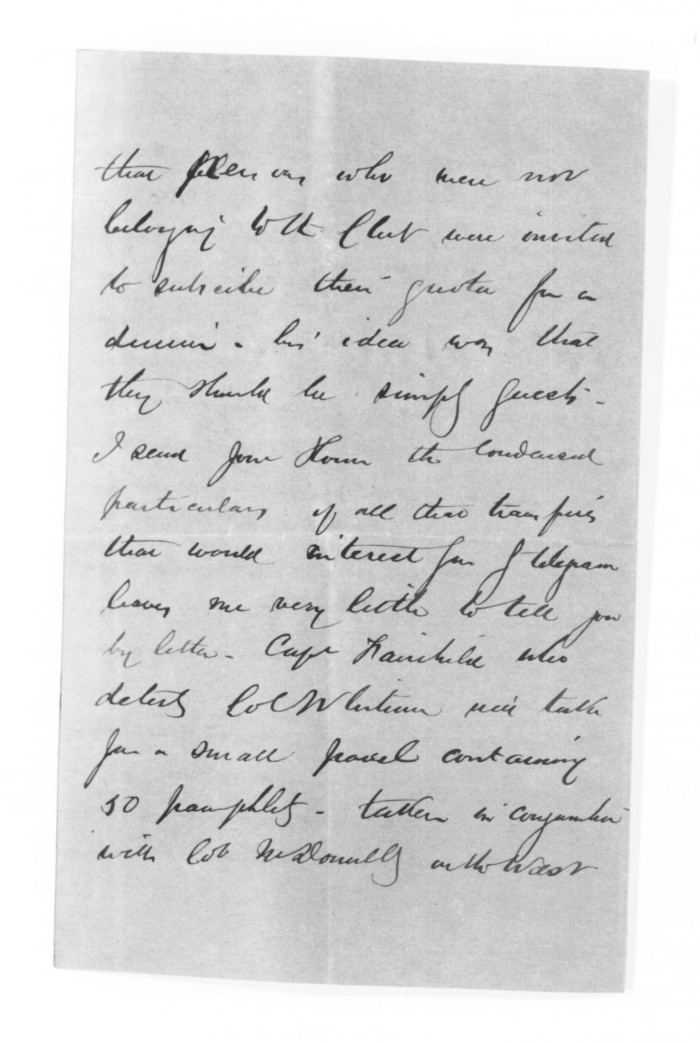 that persons who were not
belonging to the Club were invited
to subscribe their quota for a
dinner - his idea was that
they should be simply guests -
I send you Home the condensed
particulars of all that transpires
that would interest you J telegram
leaves me very little to tell you
by letter - Capt Fairchild who
detests Col Whitmore will take
you a small parcel containing
50 pamphlets - taken in conjunction
with Col McDonnells on the West